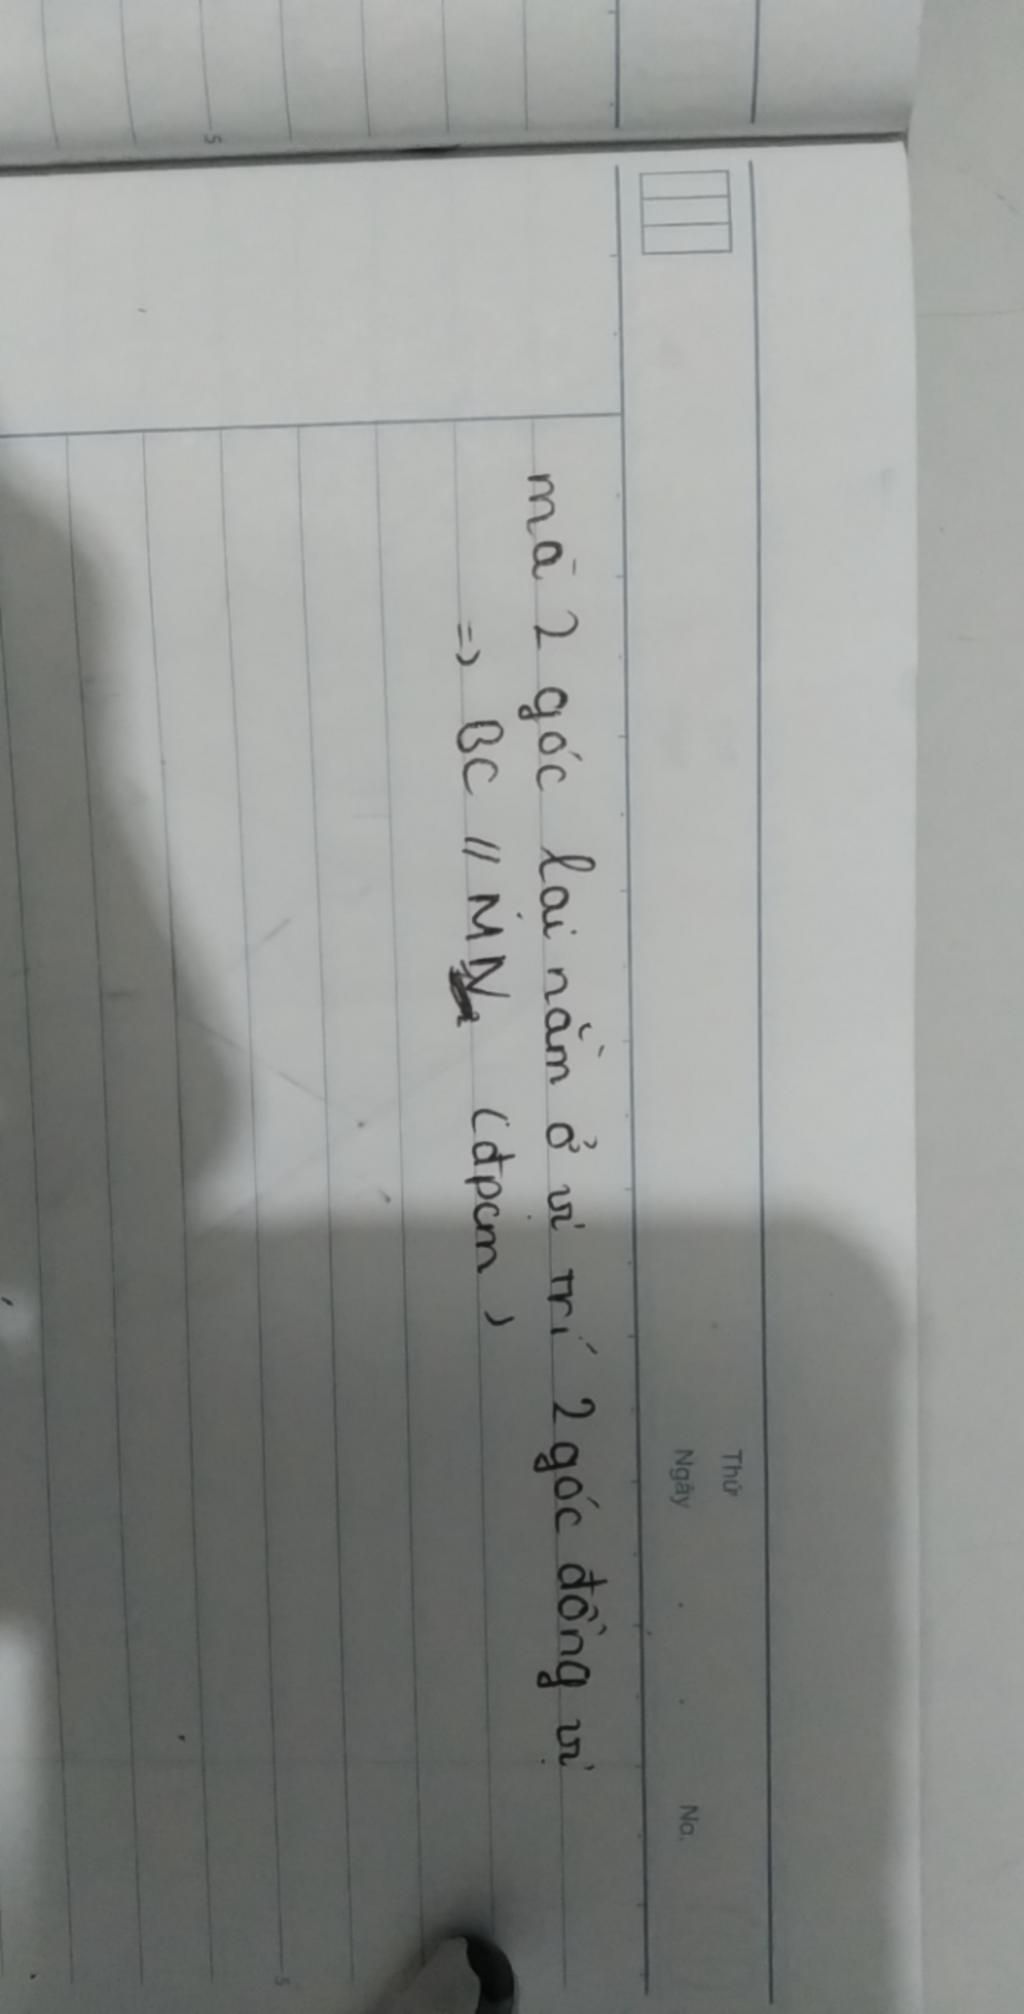 Thứ
Ngày . . No.
mà 2 góc lại nằm ở vị trí 2 góc đồng vị
=> BC // MN (đpcm)
5
5